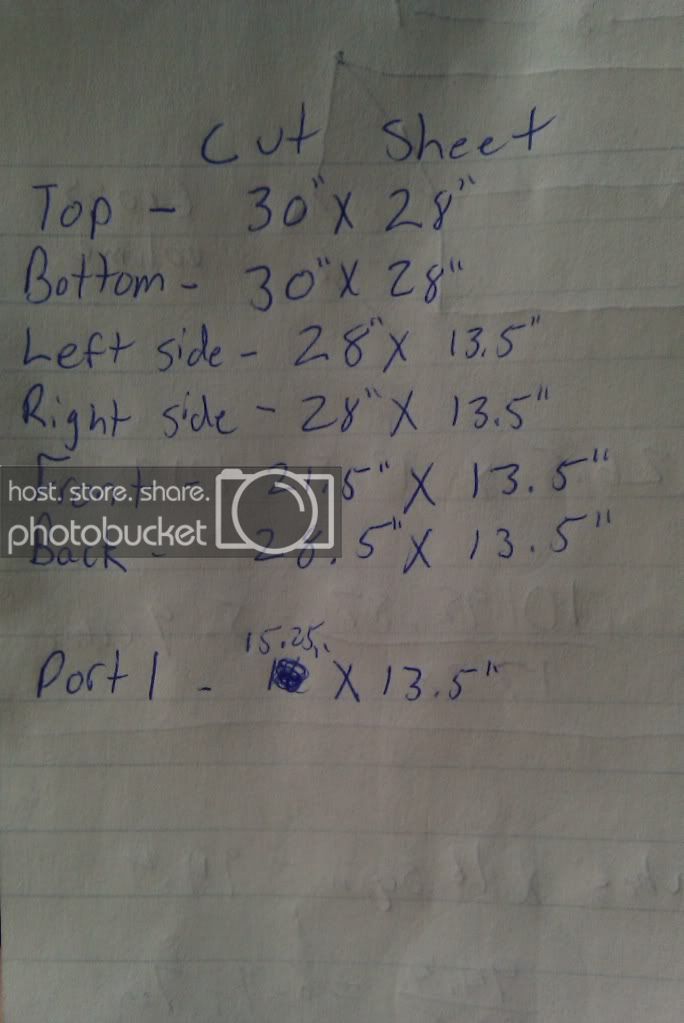 Cut Sheet
Top - 30" X 28"
Bottom - 30" X 28"
Left side - 28" X 13.5"
Right side - 28" X 13.5"
Front - X 13.5"
host. store. share.
photobucket
Back - 28.5" X 13.5"
15.25"
Port 1 - X 13.5"